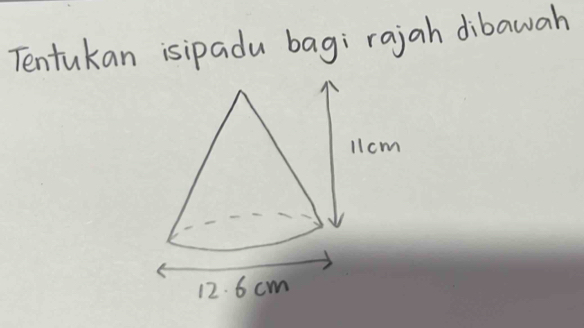 Tentukan isipadu bagi rajah dibawah
11cm
12.6 cm